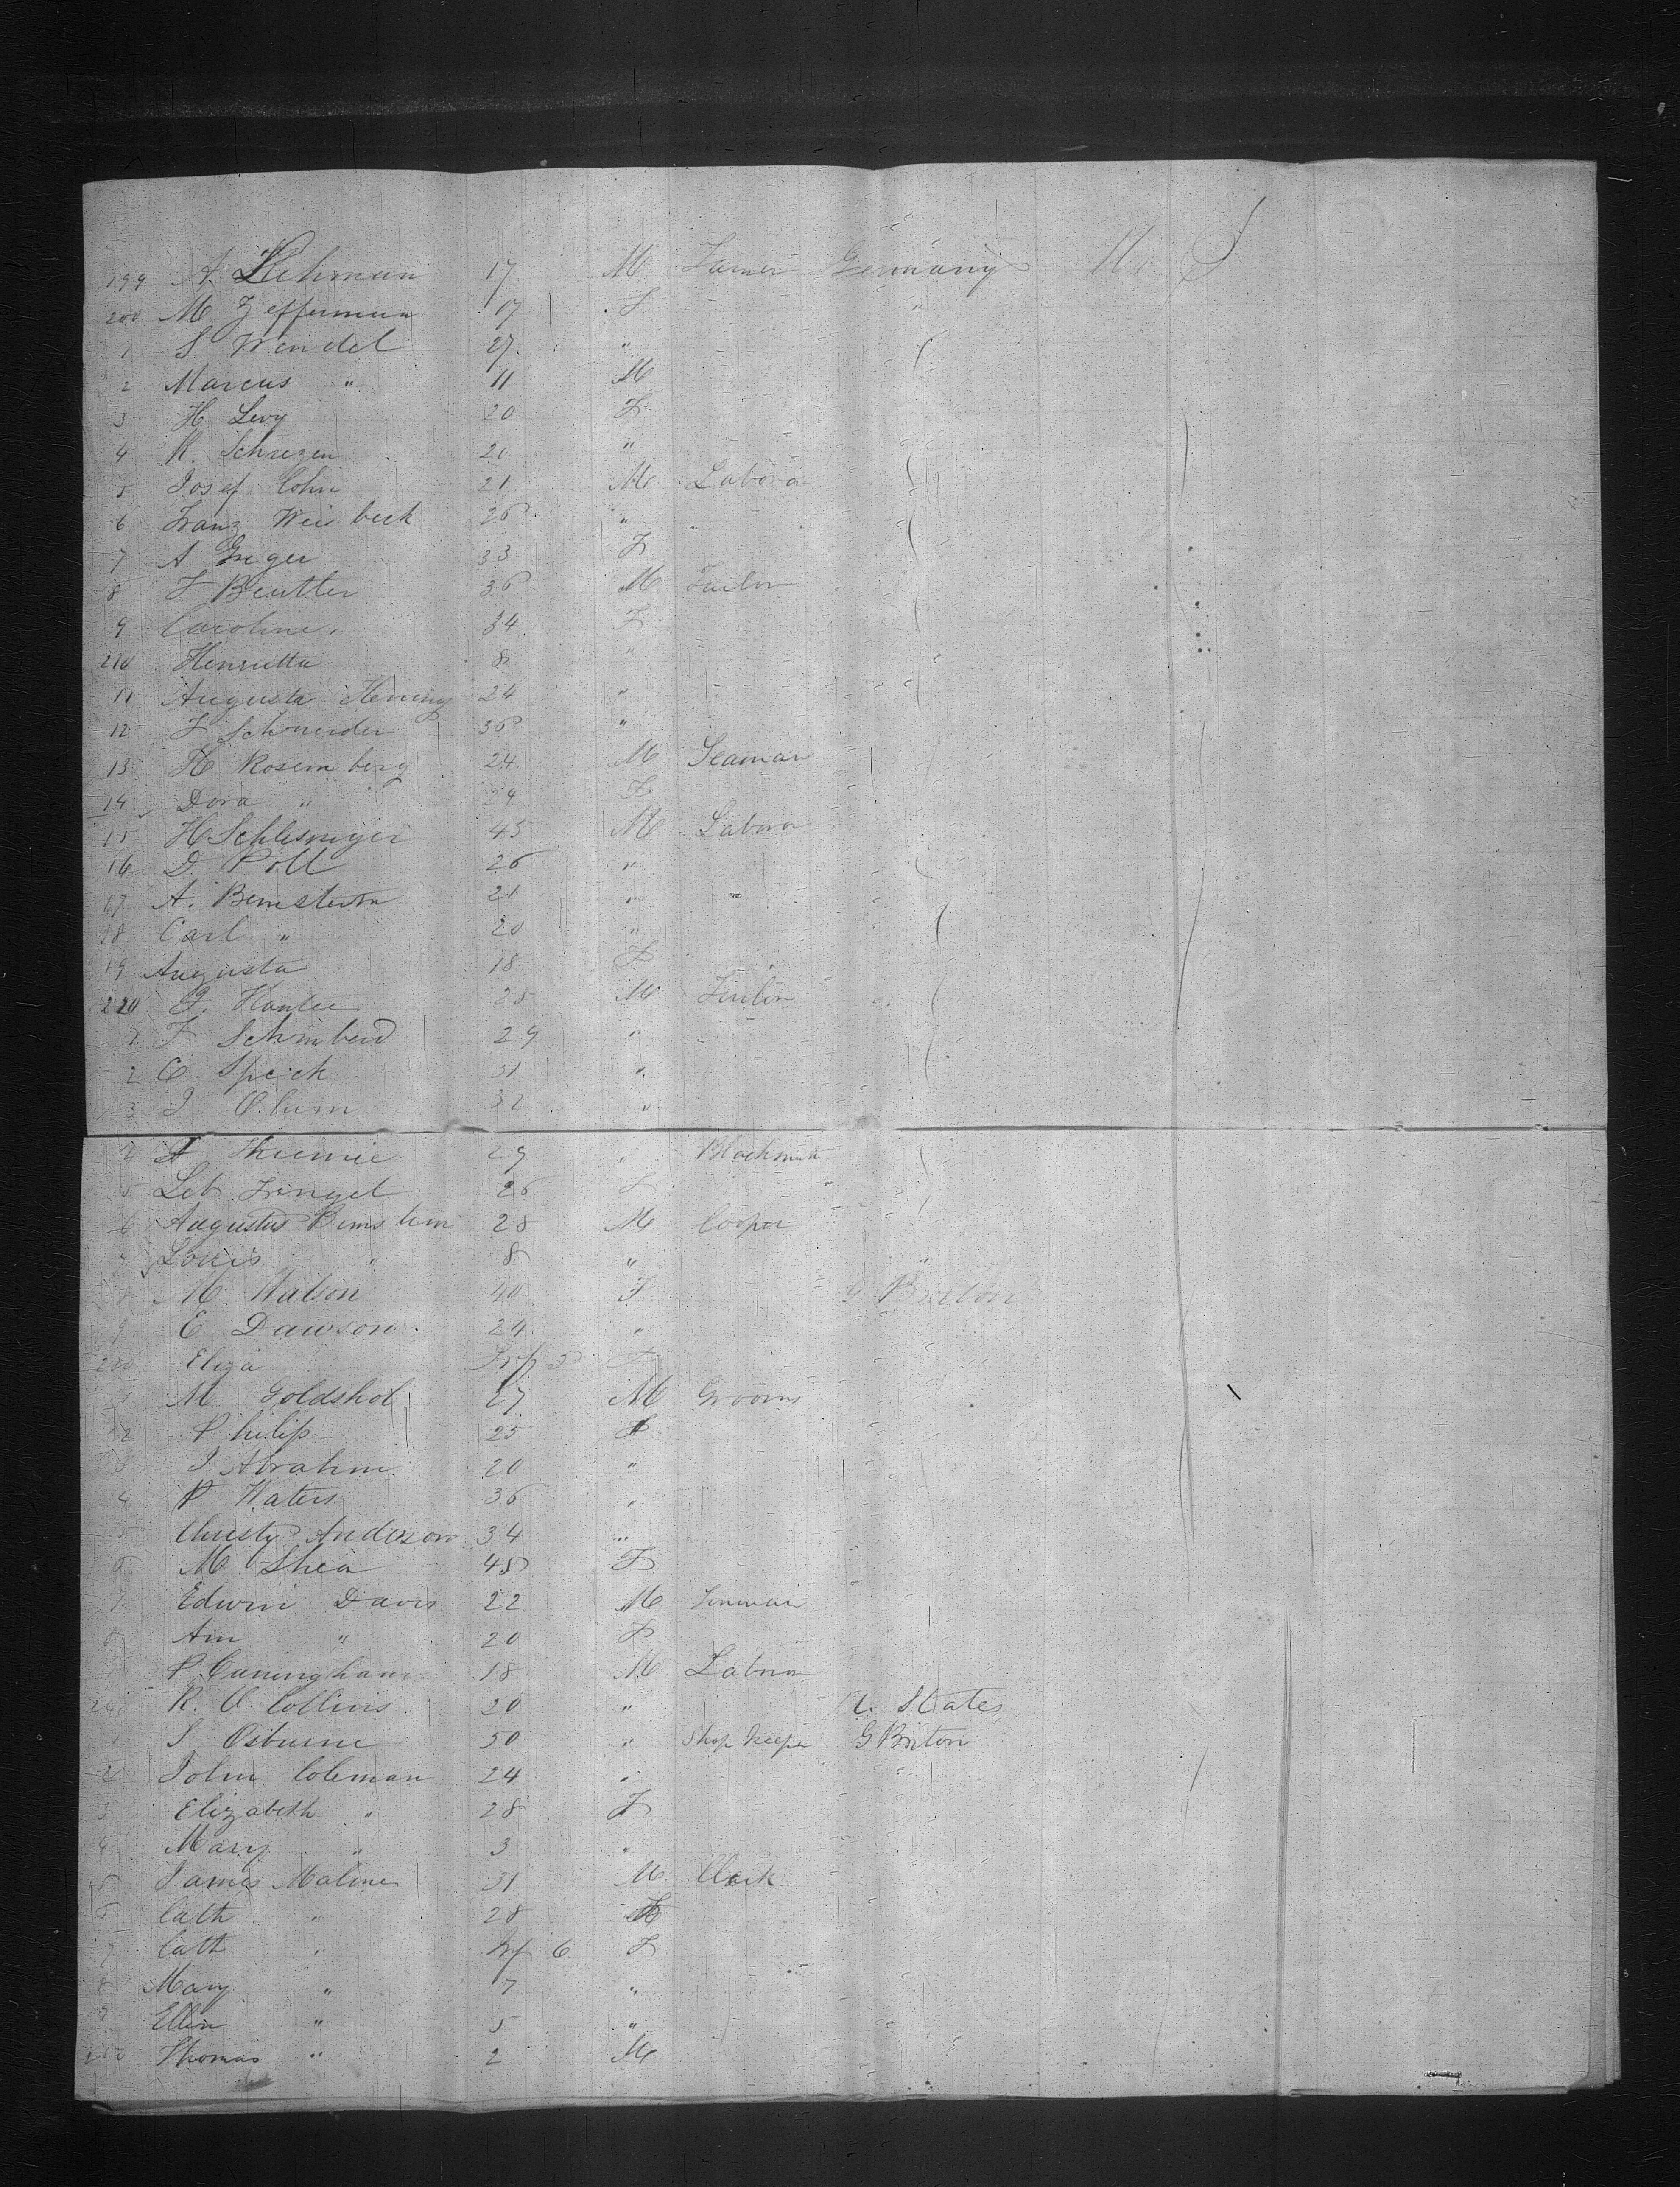 199 A. Lehman 17 M Farmer Germany U. S
200 M Zefferman 17 F " "
1 S Wendel 27 "
2 Marcus " 11 M
3 H Levy 20 F
4 R. Schrezen 20 "
5 Josef Cohn 21 M Labora
6 Franz Weisbeck 26 "
7 A Greger 33 F
8 F Beutler 36 M Tailor
9 Caroline 34 F
210 Henrietta 8 "
11 Augusta Hening 24 "
12 F Schneider 36 "
13 H Rosemberg 24 M Seaman
14 Dora " 24 F
15 H Schlesinger 45 M Labora
16 D. Poll 26 "
17 A. Bernstein 21 " "
18 Carl " 20 "
19 Augusta 18 F
220 J. Hanlee 25 M Tailor
1 F 29 "
2 C. Speick 31 "
3 J 32 "
4 A 29 " Blacksmith
5 Leb 26 F
6 Augustus Bernstein 28 M Cooper
7 Louis " 8 " "
8 M. Watson 40 F G Briton
9 E Dawson 24 "
230 Eliza Inf F
1 M Goldshol 27 M Grooms
2 Philip 25
3 J Abrahm 20 "
4 P Waters 36 "
5 Christy Anderson 34 "
6 M Shea 45 F
7 Edwin Davis 22 M
8 Ann " 20 F
9 P. Cuningham 18 M Labora
240 R. O. Collins 20 " U. States
1 S Osburne 50 " Shop Keeper G Briton
2 John Coleman 24 "
3 Elizabeth " 28 F
4 Mary " 3 "
5 James Maline 31 M Clerk
6 Cath " 28 F
7 Cath " Inf 6 F
8 Mary " 7 "
9 Ellen " 5 "
250 Thomas " 2 M